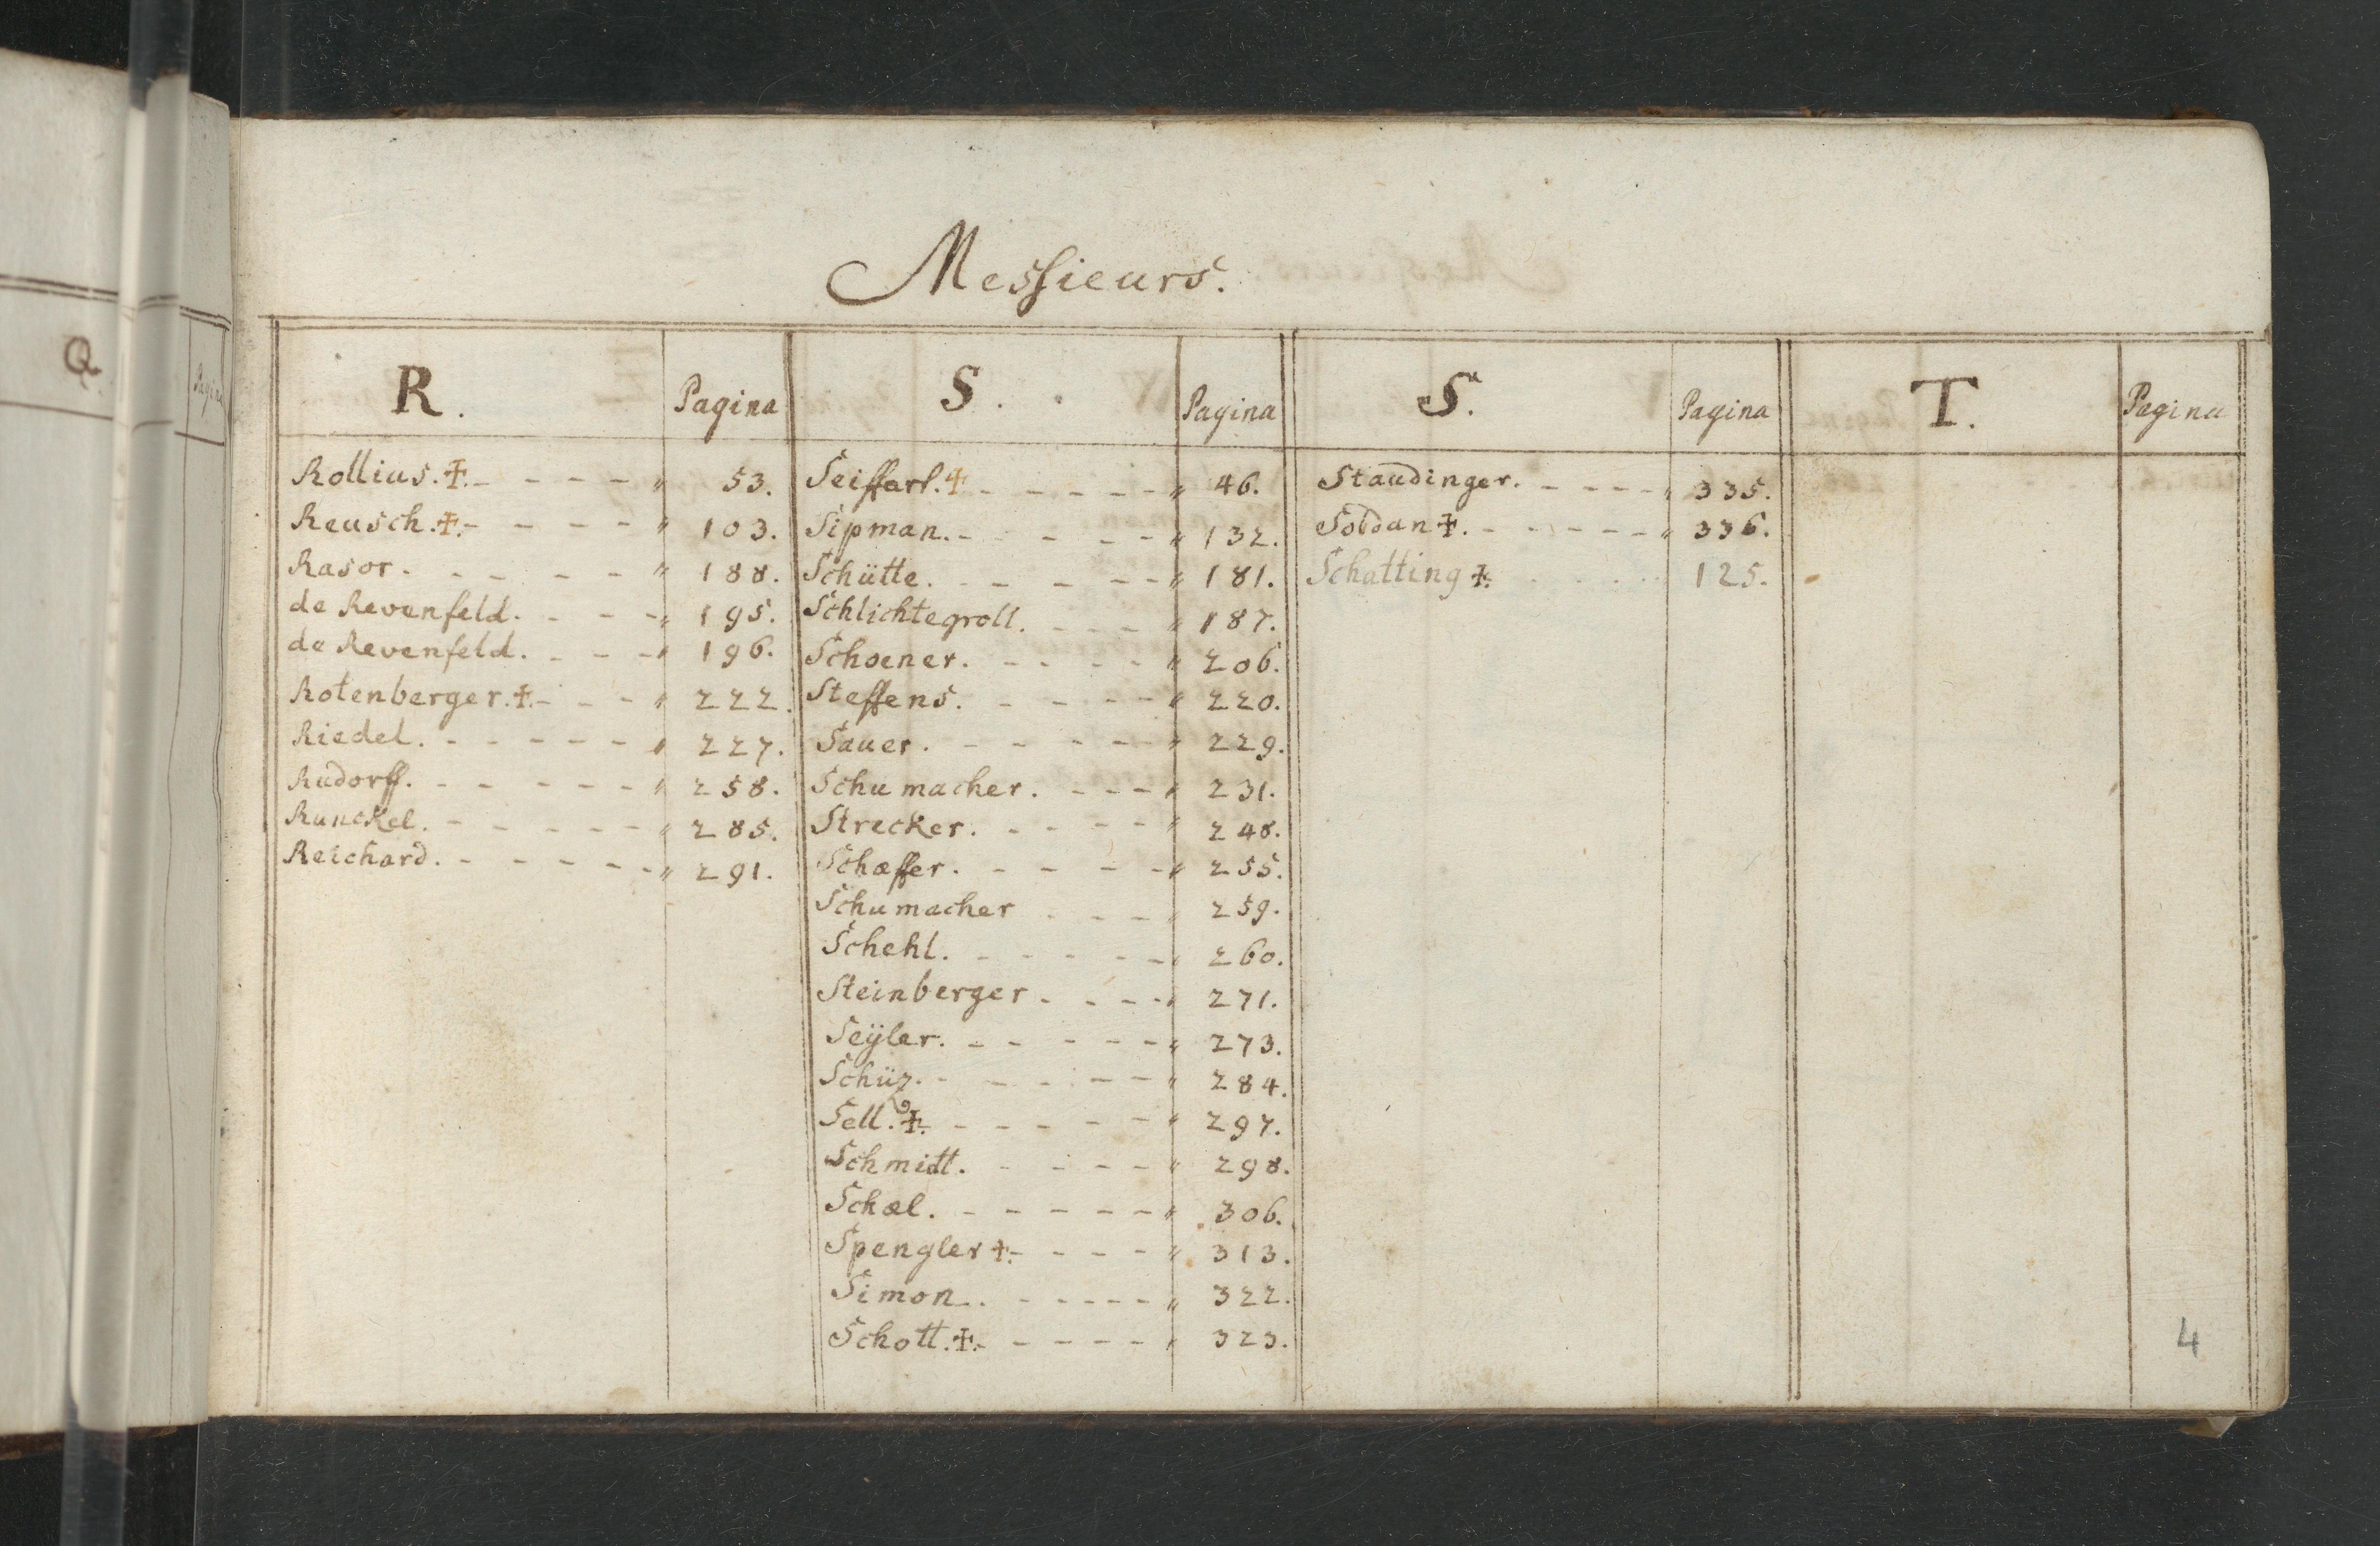 Q
Pagina
Messieurs.
R. Pagina
Rollius. ✝. - - - - " 53.
Reusch. ✝. - - - - " 103.
Rasor. - - - - - " 188.
de Revenfeld. - - - " 195.
de Revenfeld. - - - " 196.
Rotenberger. ✝. - - - " 222.
Riedel. - - - - - " 227.
Rudorff. - - - - - " 258.
Runckel. - - - - - " 285.
Reichard. - - - - - " 291.
S. Pagina
Seiffart. ✝ - - - - - " 46.
Sipman. - - - - - " 132.
Schütte. - - - - - " 181.
Schlichtegroll. - - - " 187.
Schoener. - - - - " 206.
Steffens. - - - - " 220.
Sauer. - - - - - " 229.
Schumacher. - - - " 231.
Strecker. - - - - " 248.
Schæffer. - - - - " 255.
Schumacher - - - " 259.
Schehl. - - - - - " 260.
Steinberger - - - - " 271.
Seÿler. - - - - - " 273.
Schüz. - - - - - " 284.
Sell. ✝. - - - - - " 297.
Schmidt. - - - - " 298.
Schæl. - - - - - " 306.
Spengler ✝. - - - - " 313.
Simon. - - - - - " 322.
Schott. ✝. - - - - " 323.
S. Pagina
Staudinger. - - - - " 335.
Soldan ✝. - - - - - " 336.
Schatting ✝. - - - - 125.
T. Pagina
4